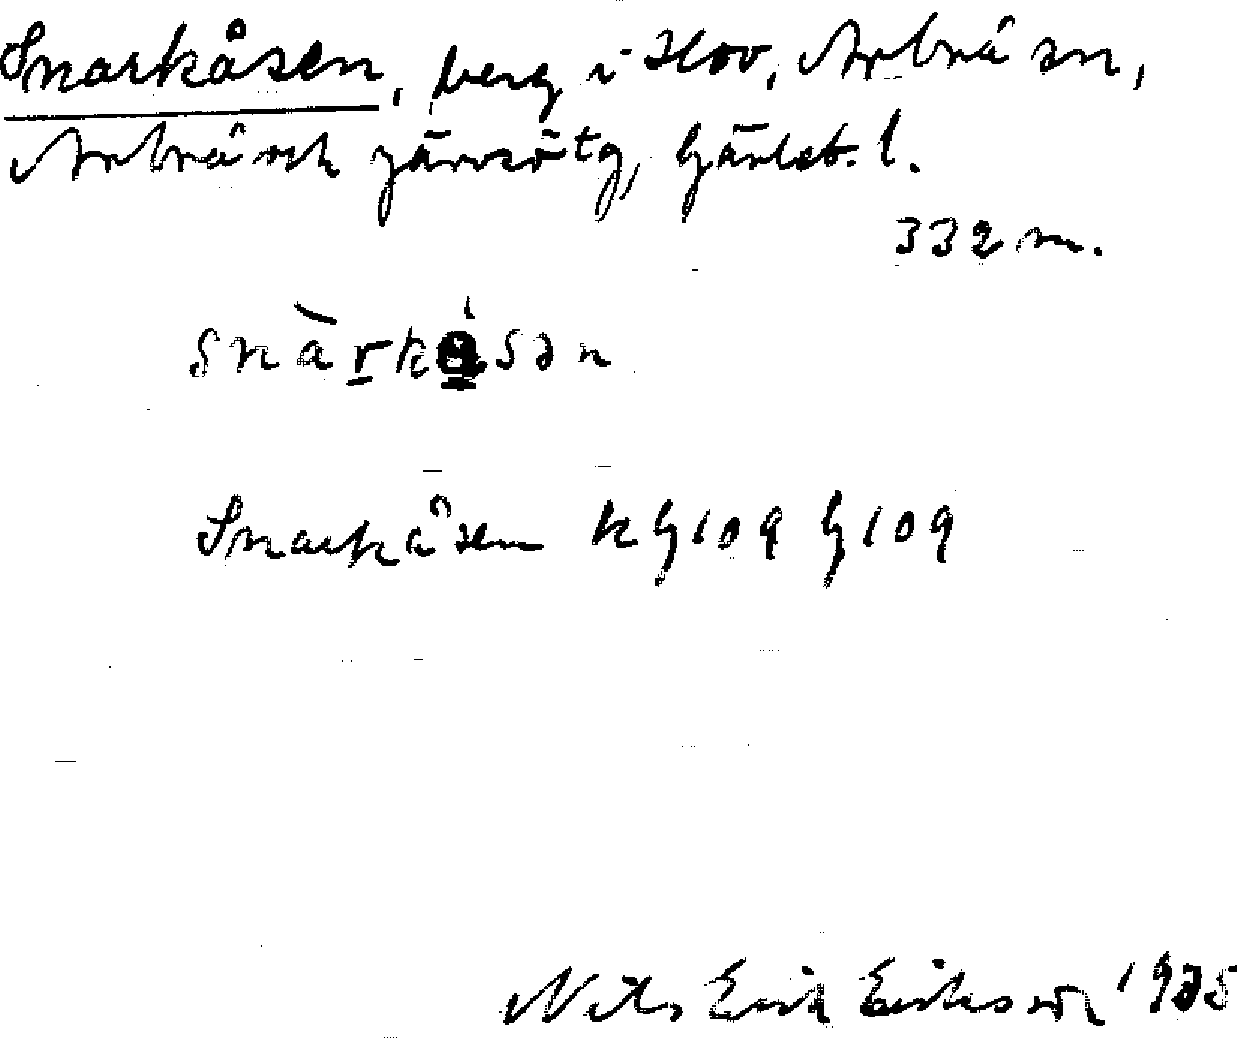 Snarkåsen, berg i Hov, Arbrå sn,
Arbrå och Järvsö tg, Gävleb. l.
332 m.
snàrkåsən
Snarkåsen k G109 G109
Nils Erik Eriksson 1935